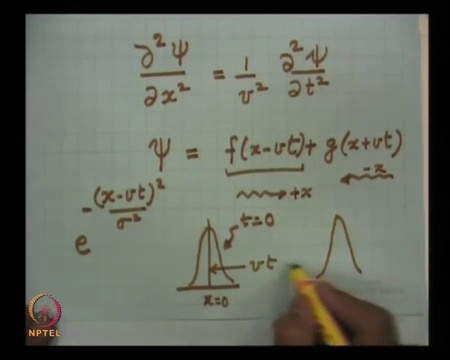 ∂²Ψ/∂x² = 1/v² ∂²Ψ/∂t²
Ψ = f(x-vt) + g(x+vt)
→ +x ← -x
e^(-(x-vt)²/σ²)
t=0
vt
x=0
NPTEL